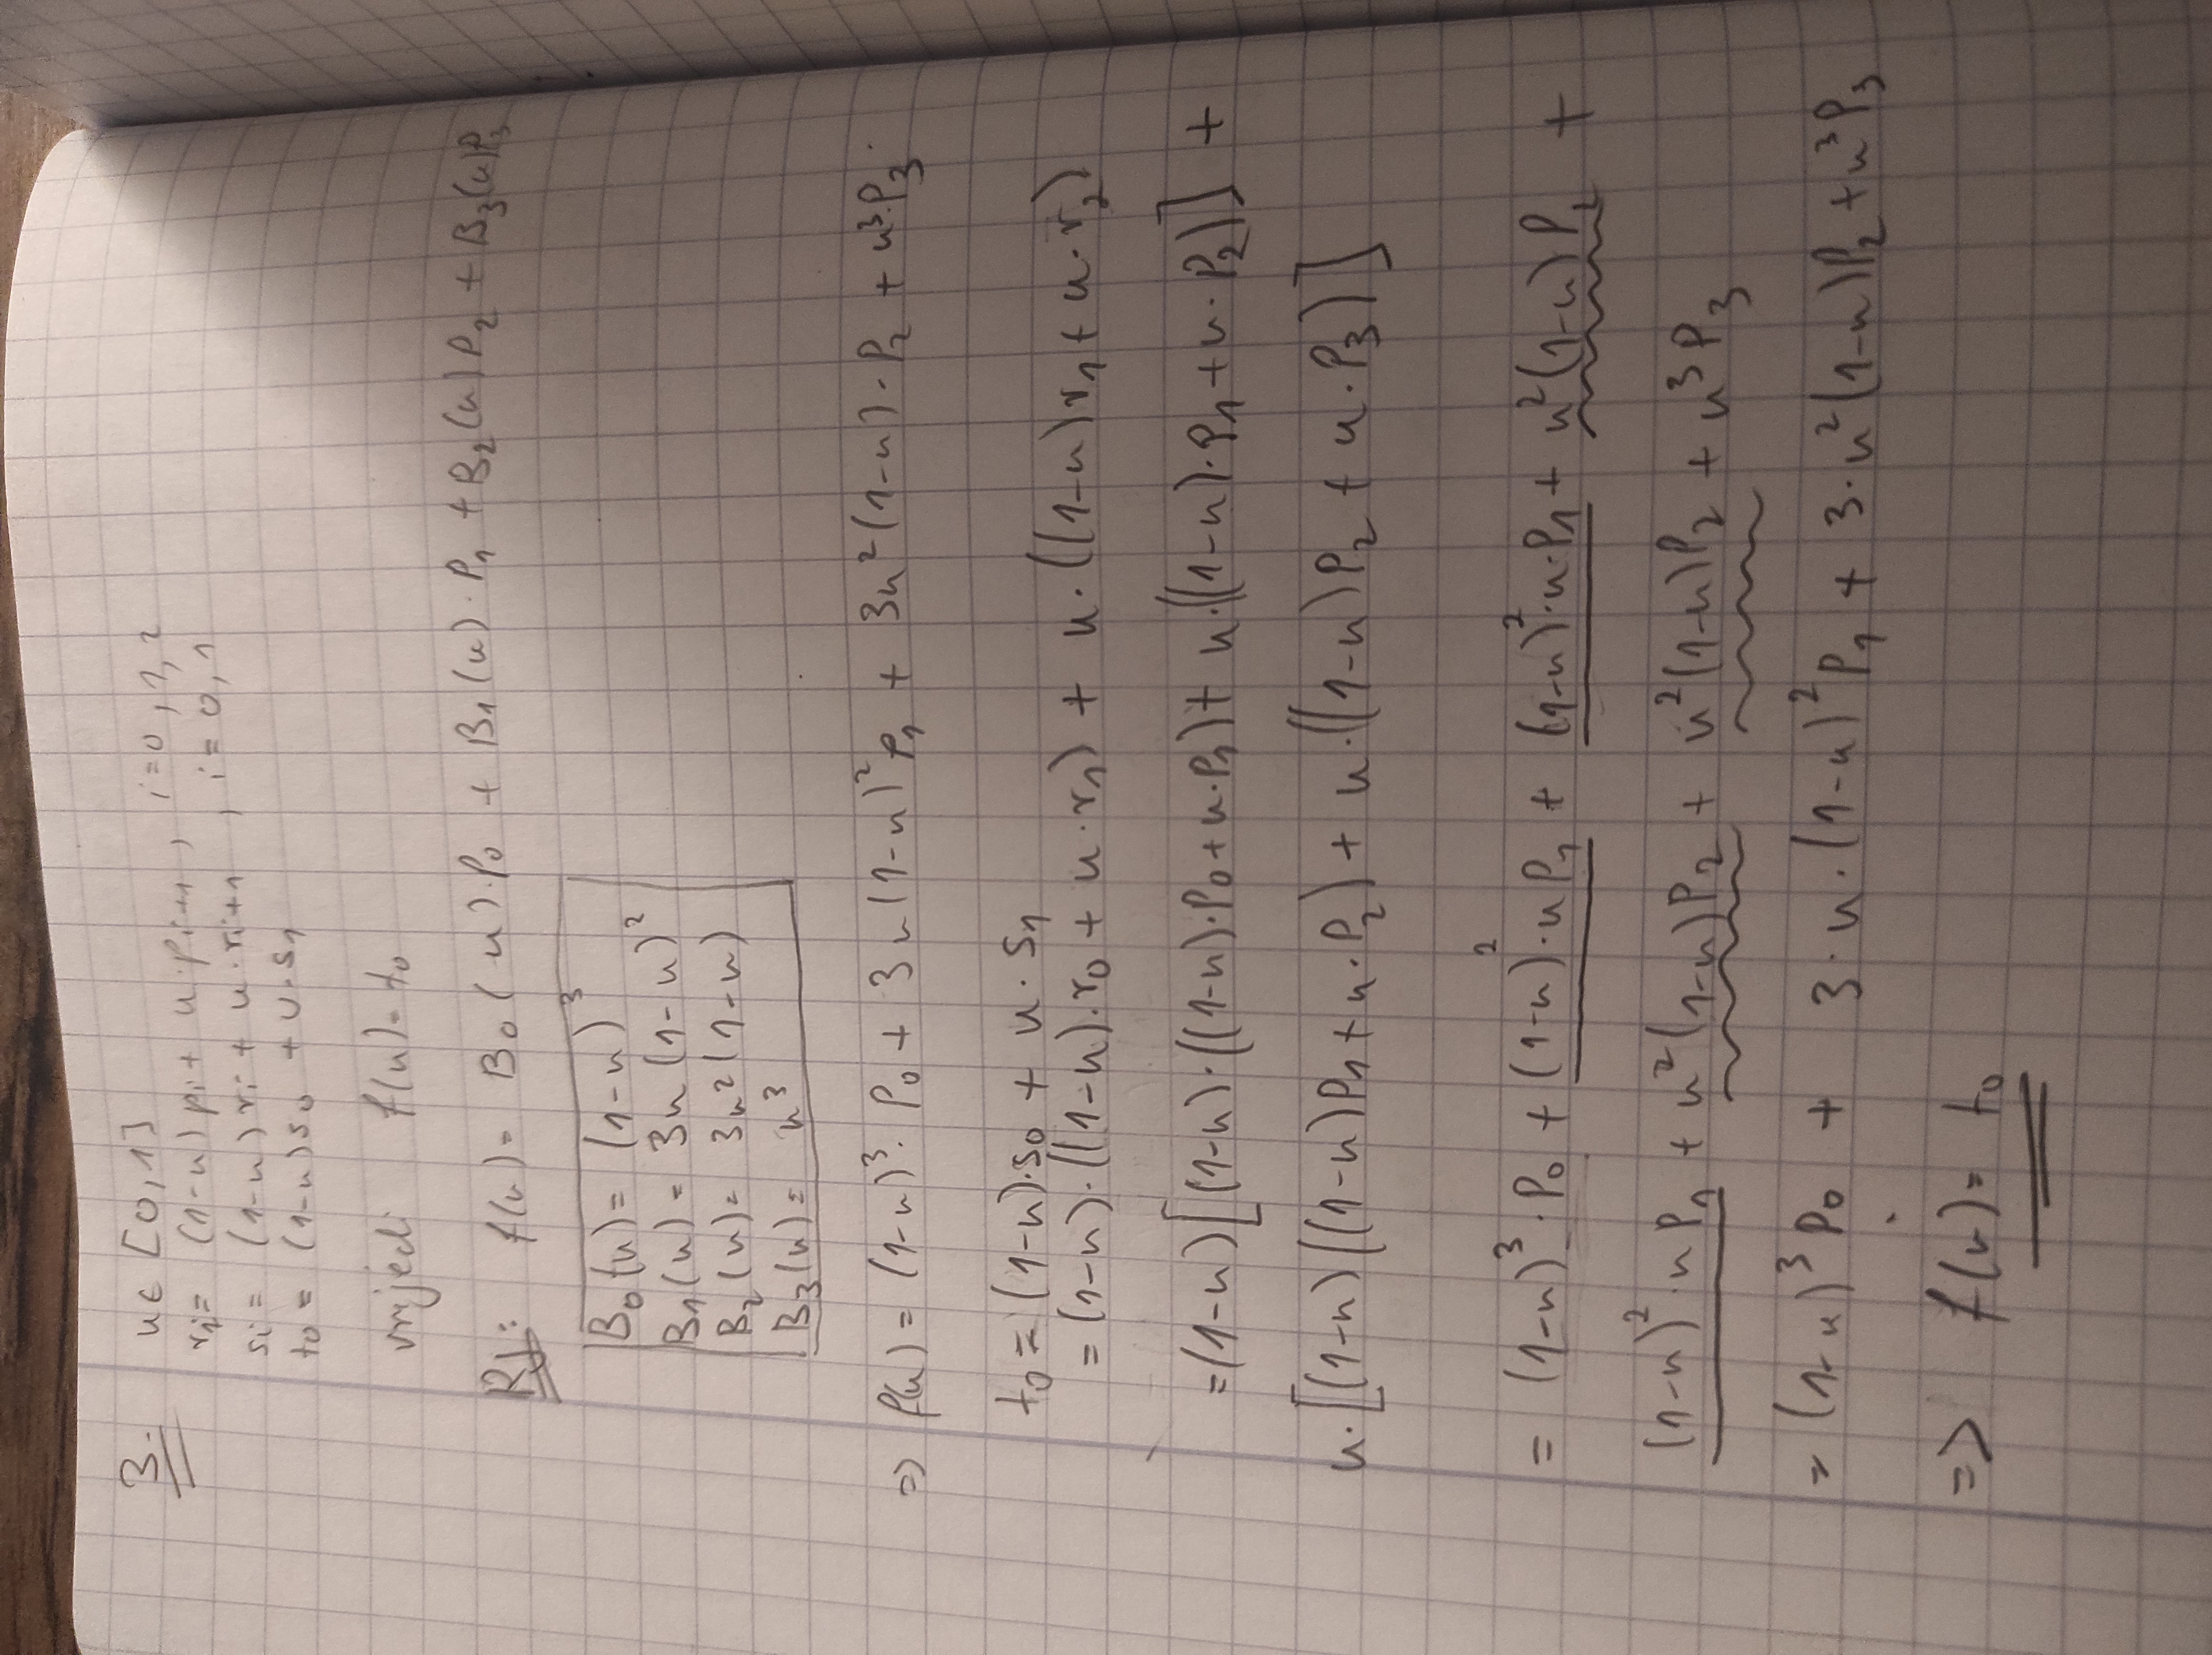 3.
u ∈ [0,1]
ri = (1-u) pi + u·pi+1 , i=0,1,2
si = (1-u) ri + u·ri+1 , i=0,1
t0 = (1-u) s0 + u·s1
vrijedi f(u) = t0
Rj: f(u) = B0(u)·P0 + B1(u)·P1 + B2(u) P2 + B3(u)P3
B0(u) = (1-u)³
B1(u) = 3u (1-u)²
B2(u) = 3u²(1-u)
B3(u) = u³
=> f(u) = (1-u)³· P0 + 3u(1-u)² P1 + 3u²(1-u)·P2 + u³·P3
t0 = (1-u)·s0 + u·s1
= (1-u)·((1-u)·r0 + u·r1) + u·((1-u)r1 + u·r2)
= (1-u)[(1-u)·((1-u)·P0+u·P1) + u·((1-u)·P1+u·P2)] +
u·[(1-u)((1-u)P1+u·P2) + u·((1-u)P2 + u·P3)]
= (1-u)³·P0 + (1-u)²·u P1 + (1-u)²·u·P1 + u²(1-u) P2 +
(1-u)²·u P1 + u²(1-u)P2 + u²(1-u)P2 + u³ P3
= (1-u)³ P0 + 3·u·(1-u)² P1 + 3·u²(1-u)P2 + u³P3
=> f(u) = t0